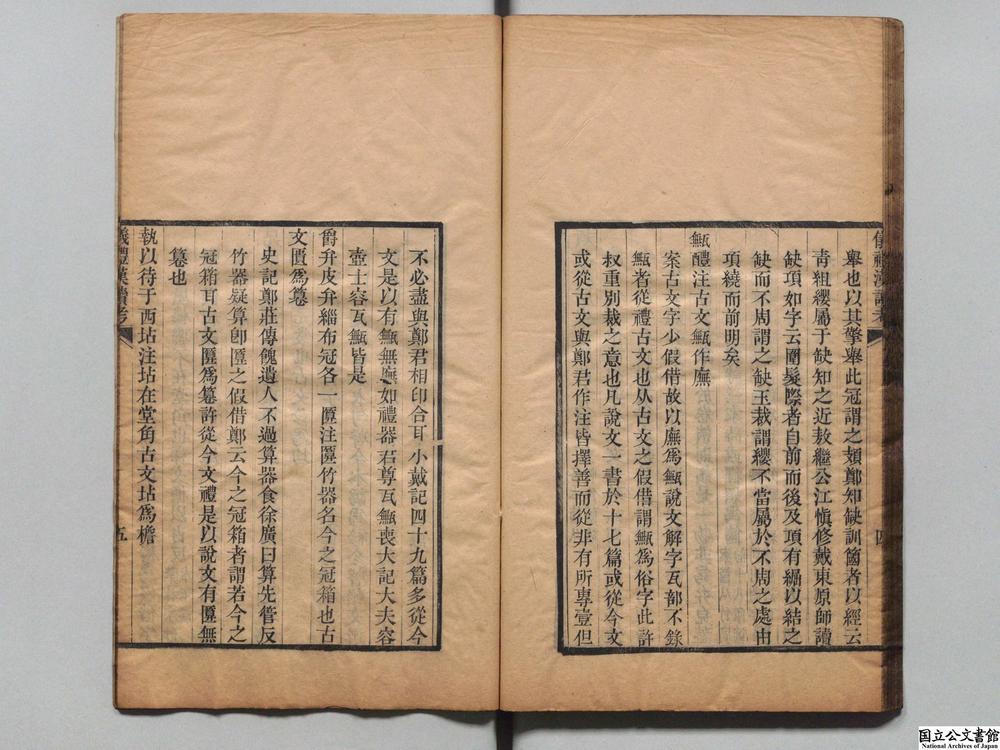 儀禮漢讀考
四
舉也以其擎舉此冠謂之頍鄭知缺訓箇者以經云
青組纓屬于缺知之近敖繼公江愼修戴東原師讀
缺項如字云圍髮際者自前而後及項有繩以結之
缺而不周謂之缺玉裁謂纓不當屬於不周之處由
項繞而前明矣
甒醴注古文甒作廡
案古文字少假借故以廡爲甒說文解字瓦部不錄
甒者從禮古文也从古文之假借謂甒爲俗字此許
叔重別裁之意也凡說文一書於十七篇或從今文
或從古文與鄭君作注皆擇善而從非有所專壹但
不必盡與鄭君相印合耳小戴記四十九篇多從今
文是以有甒無廡如禮器君尊瓦甒喪大記大夫容
壺士容瓦甒皆是
爵弁皮弁緇布冠各一匴注匴竹器名今之冠箱也古
文匴爲篹
史記鄭莊傳餽遺人不過算器食徐廣曰算先管反
竹器疑算卽匴之假借鄭云今之冠箱者謂若今之
冠箱耳古文匴爲篹許從今文禮是以說文有匴無
篹也
執以待于西坫注坫在堂角古文坫爲檐
儀禮漢讀考
五
国立公文書館
National Archives of Japan